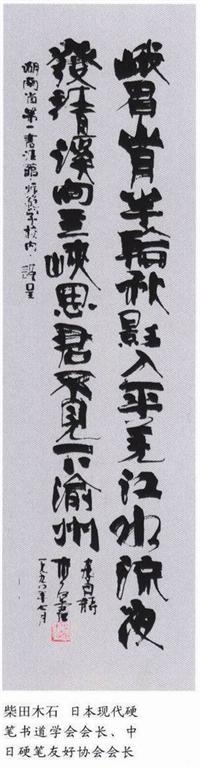 峨眉山月半輪秋影入平羌江水流夜
發清溪向三峡思君不見下渝州
李白詩
一九九八年七月
湖南省第一書法
柴田木石 日本现代硬
笔书道学会会长、中
日硬笔友好协会会长